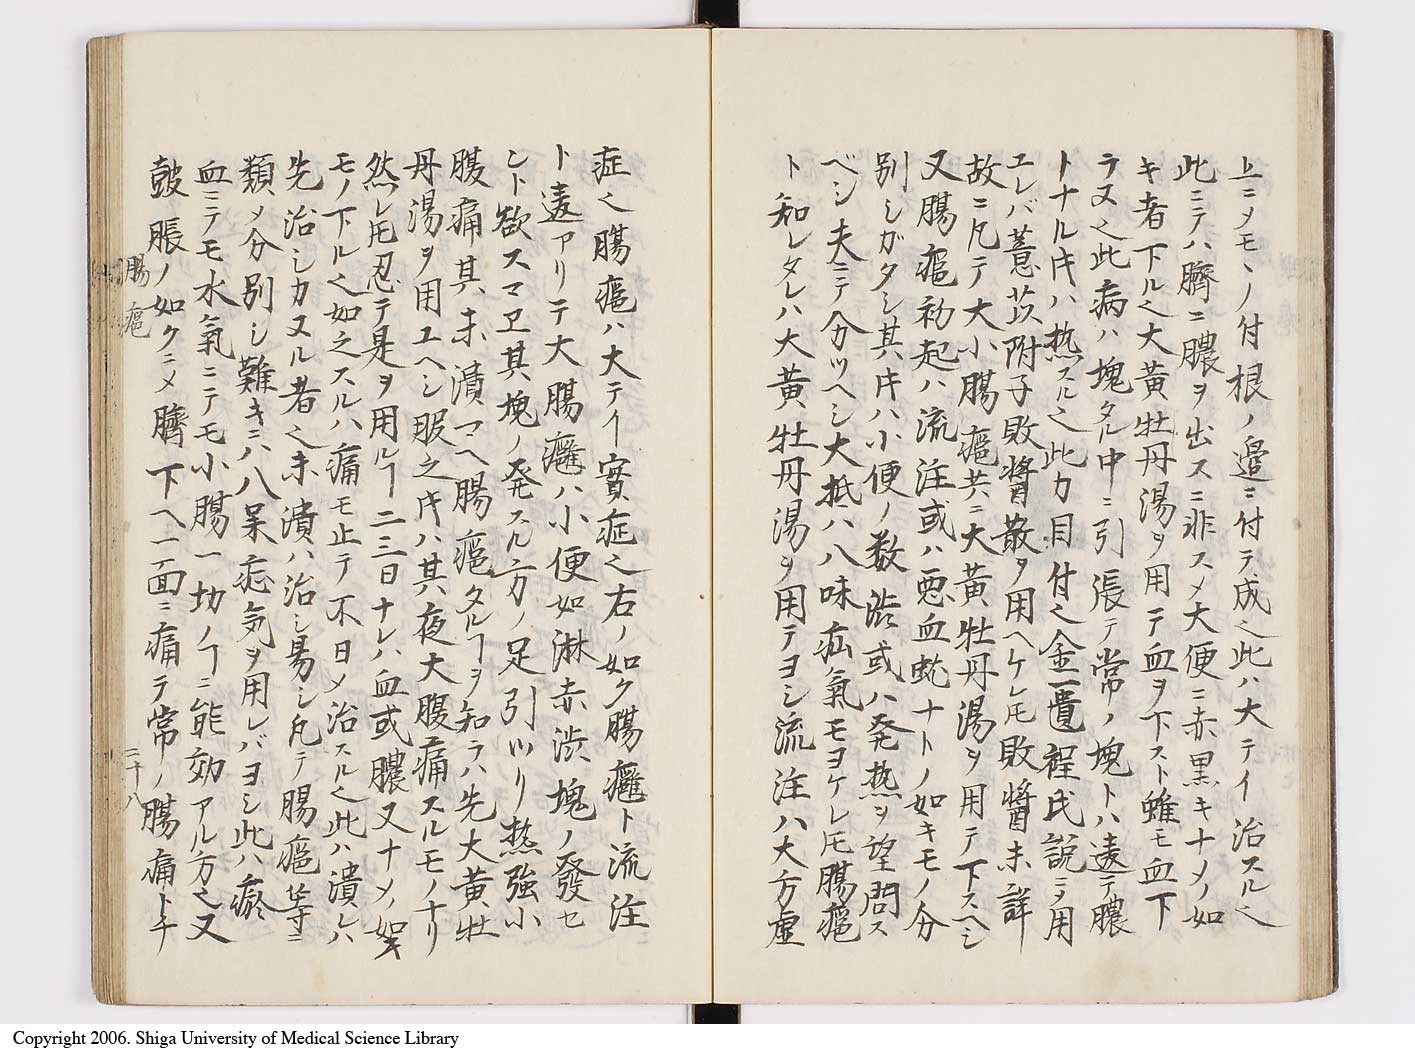 上ニメモヽノ付根ノ邉ニ付テ成之此ハ大テイ治スル之
此ニテハ臍ニ膿ヲ出スニ非スメ大便ニ赤黒キナメノ如
キ者下ル之大黄牡丹湯ヲ用テ血ヲ下スト雖モ血下
ラヌ之此病ハ塊タル中ニ引張テ常ノ塊トハ違テ膿
トナル片ハ热スル之此カ目付之金匱程氏説ニヲ用
エレバ薏苡附子敗醬散ヲ用ヘケレ𪜈敗醬未詳
故ニ凡テ大小腸癰共ニ大黄牡丹湯ヲ用テ下スヘシ
又腸癰初起ハ流注或ハ悪血蛇ナトノ如キモノ分
別シガタシ其片ハ小便ノ数渋或ハ発热ヲ望問ス
ベシ夫ニテ分カツヘシ大抵ハ八味疝氣モヨケレ𪜈腸癰
ト知レタレハ大黄牡丹湯ヲ用テヨシ流注ハ大方虚
症之腸癰ハ大テイ實症之右ノ如ク腸癰ト流注
ト違アリテ大腸癰ハ小便如淋赤渋塊ノ發セ
ント欲スマヱ其塊ノ発スル方ノ足引ツリ热強小
腹痛其未潰マヘ腸癰タルヿヲ知ラハ先大黄牡
丹湯ヲ用ユヘシ服之片ハ其夜大腹痛スルモノナリ
然レ𪜈忍テ是ヲ用ルヿ二三日ナレハ血或膿又ナメノ如キ
モノ下ル之如之スルハ痛モ止テ不日メ治スル之此ハ潰レハ
先治シカヌル者之未潰ハ治シ易シ凡テ腸癰等ニ
類メ分別シ難キニハ八味疝気ヲ用レバヨシ此ハ瘀
血ニテモ水氣ニテモ小腸一切ノヿニ能効アル方之又
皷脹ノ如クニメ臍下ヘ一面ニ痛テ常ノ腸痛トチ
腸癰
二十八